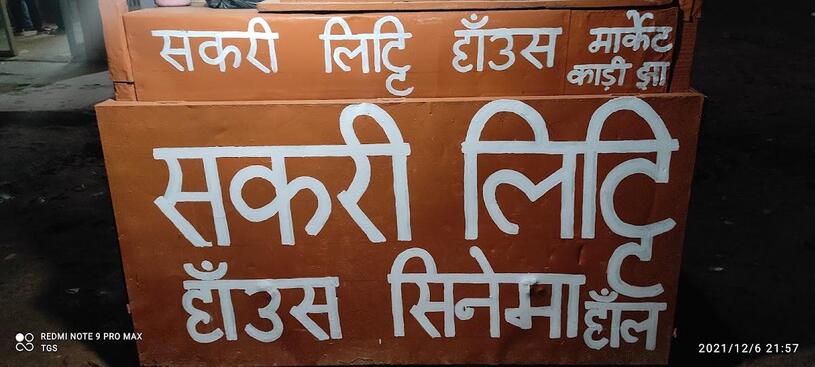 सकरी लिट्टि हाँउस मार्केट
काड़ी झा
सकरी लिट्टि
हाँउस सिनेमा हाँल
REDMI NOTE 9 PRO MAX
TGS
2021/12/6 21:57